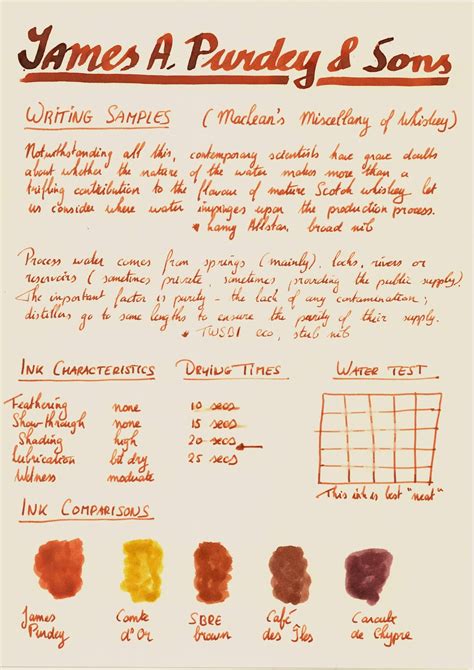 James A. Purdey & Sons
Writing Samples (Maclean's Miscellany of Whiskey)
Notwithstanding all this, contemporary scientists have grave doubts
about whether the nature of the water makes more than a
trifling contribution to the flavour of mature Scotch whiskey let
us consider where water impinges upon the production process.
* Lamy Allstar, broad nib
Process water comes from springs (mainly), lochs, rivers or
reservoirs (sometimes private, sometimes providing the public supply).
The important factor is purity - the lack of any contamination;
distillers go to some lengths to ensure the purity of their supply.
* TWSBI eco, stub nib
Ink Characteristics Drying Times Water Test
Feathering none 10 secs
Show-through none 15 secs
Shading high 20 secs
Lubrication bit dry 25 secs
Wetness moderate
This ink is best "neat"
Ink Comparisons
James Comte SBRE Café Caroube
Purdey d'Or brown des Îles de Chypre